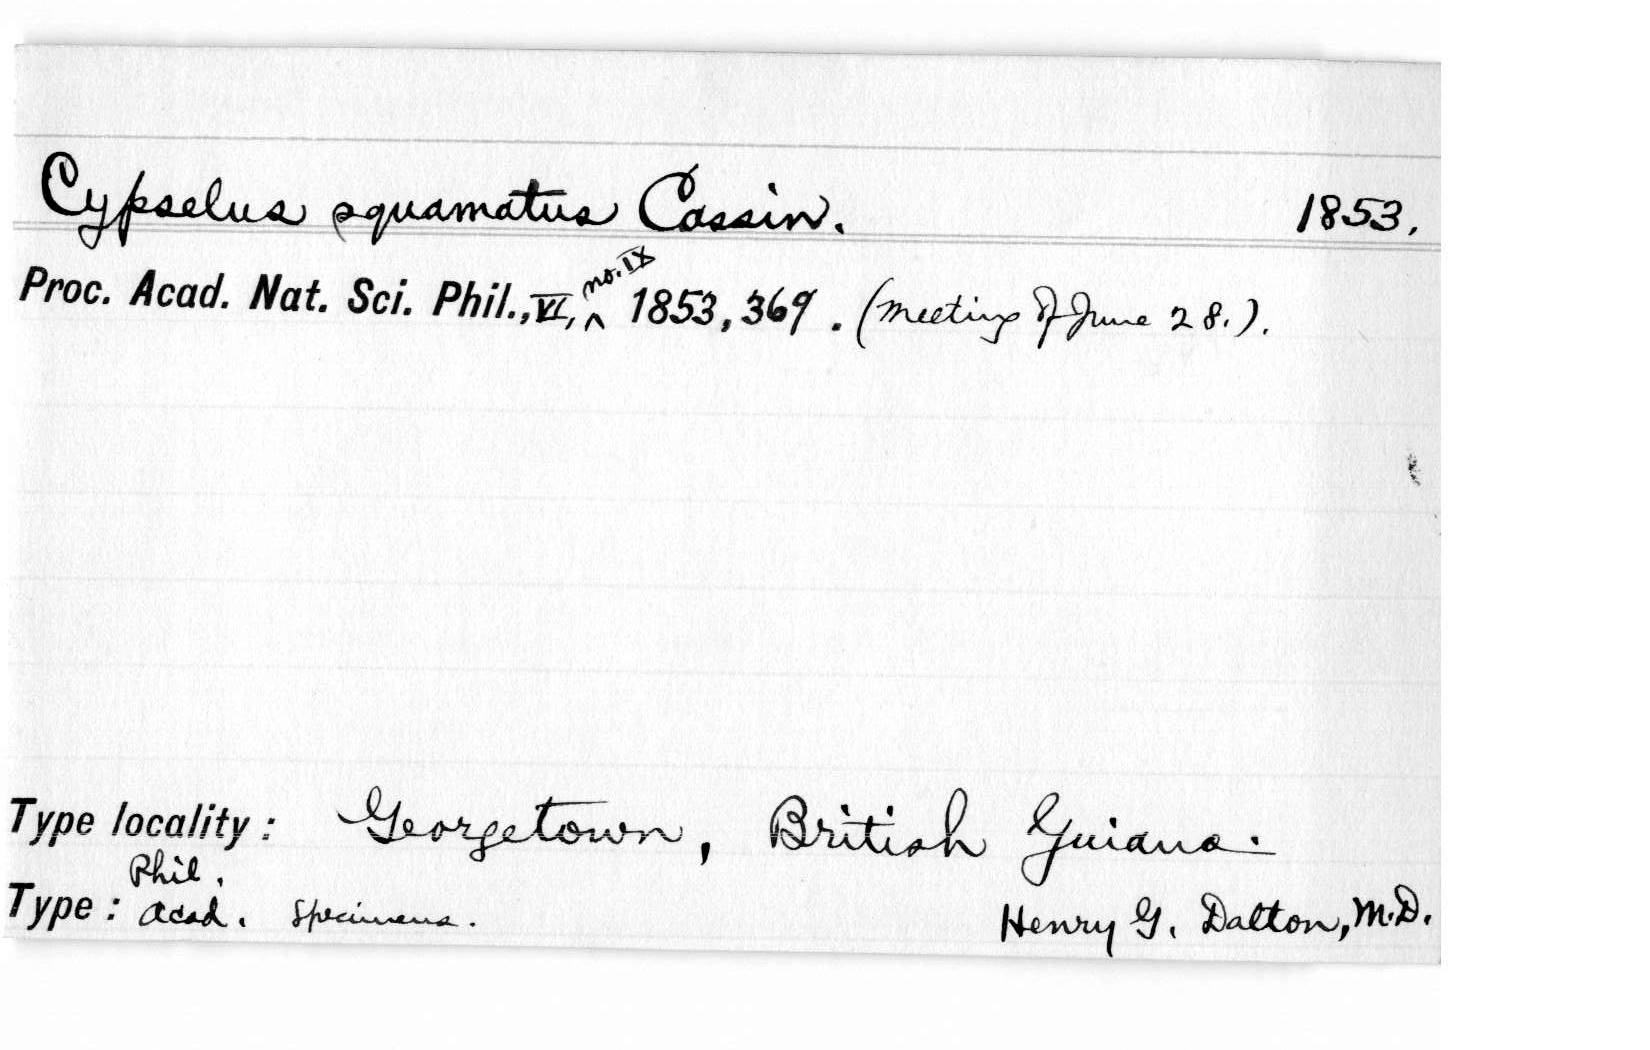 Cypselus squamatus Cassin. 1853.
Proc. Acad. Nat. Sci. Phil., VI, no. IX 1853, 369. (Meeting of June 28.).
Type locality: Georgetown, British Guiana.
Phil.
Type: Acad. Specimens. Henry G. Dalton, M.D.